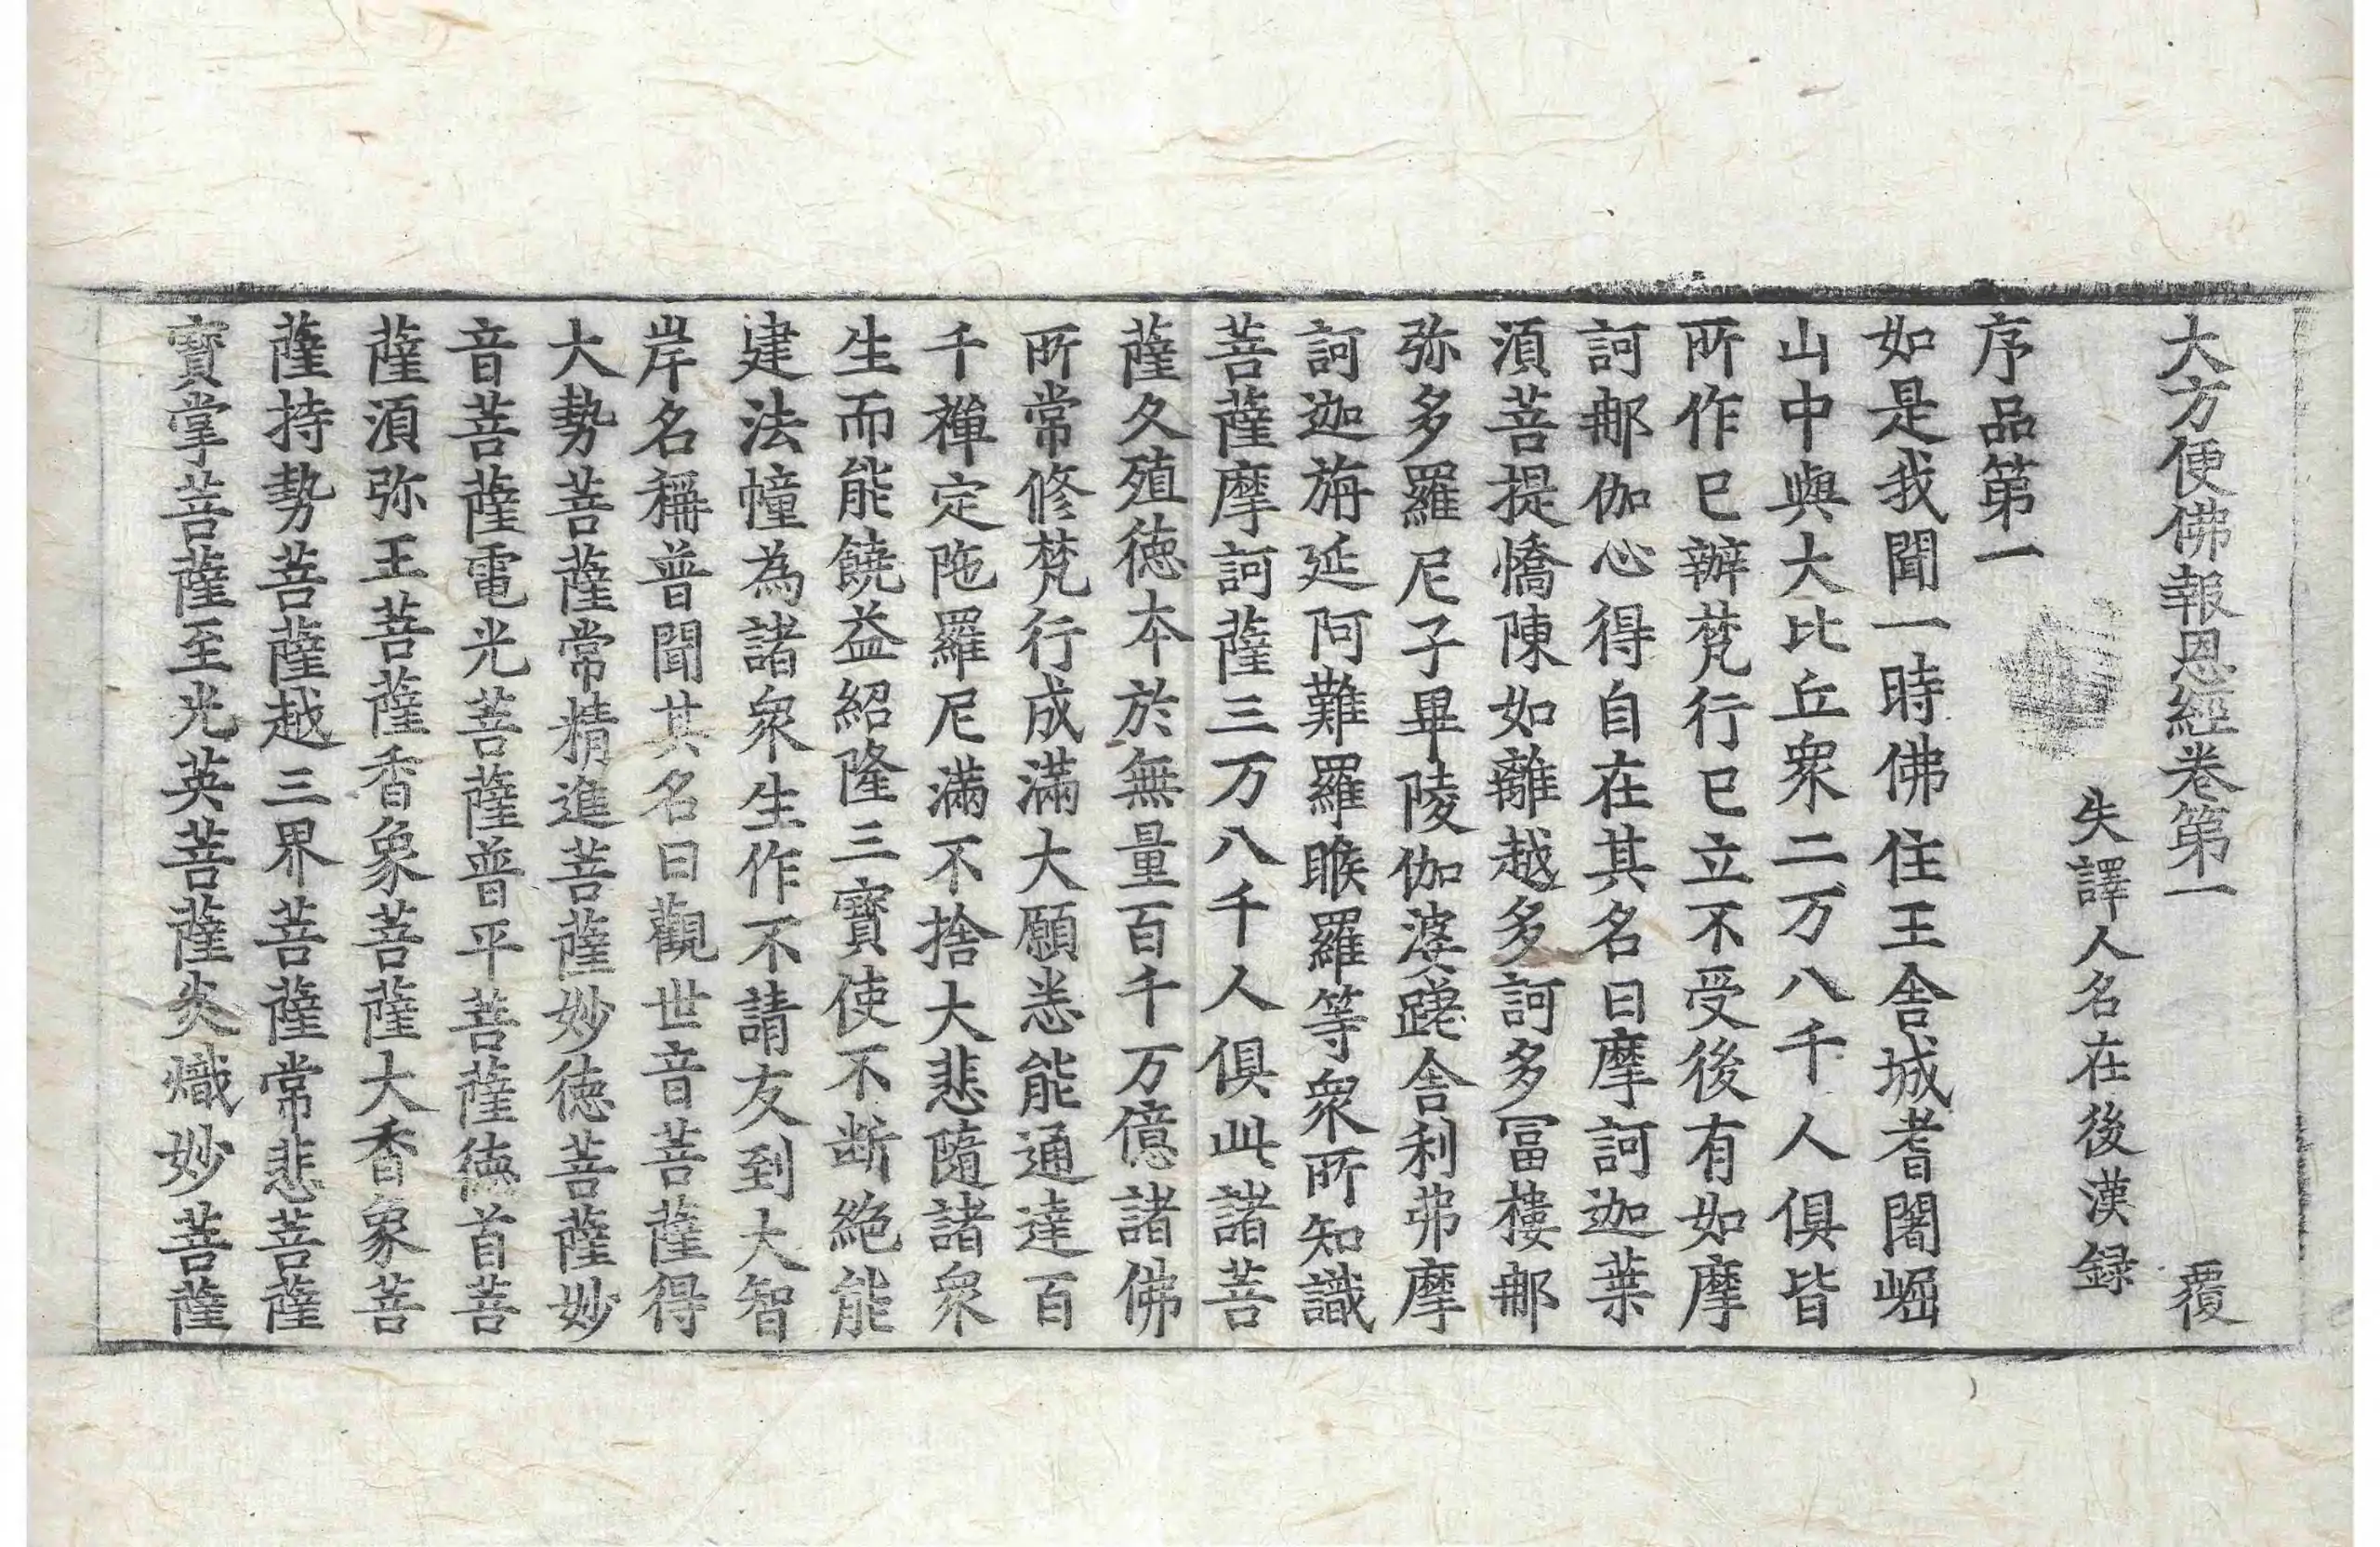 大方便佛報恩經卷第一 覆
失譯人名在後漢録
序品第一
如是我聞一時佛住王舍城耆闍崛
山中與大比丘衆二万八千人俱皆
所作已辦梵行已立不受後有如摩
訶那伽心得自在其名曰摩訶迦葉
湏菩提憍陳如離越多訶多冨樓那
弥多羅尼子畢陵伽婆蹉舍利弗摩
訶迦旃延阿難羅睺羅等衆所知識
菩薩摩訶薩三万八千人俱此諸菩
薩久殖徳本於無量百千万億諸佛
所常修梵行成滿大願悉能通達百
千禪定陁羅尼滿不捨大悲隨諸衆
生而能饒益紹隆三寶使不断絶能
建法幢為諸衆生作不請友到大智
岸名稱普聞其名曰觀世音菩薩得
大勢菩薩常精進菩薩妙徳菩薩妙
音菩薩電光菩薩普平菩薩徳首菩
薩湏弥王菩薩香象菩薩大香象菩
薩持勢菩薩越三界菩薩常悲菩薩
寶掌菩薩至光英菩薩炎熾妙菩薩